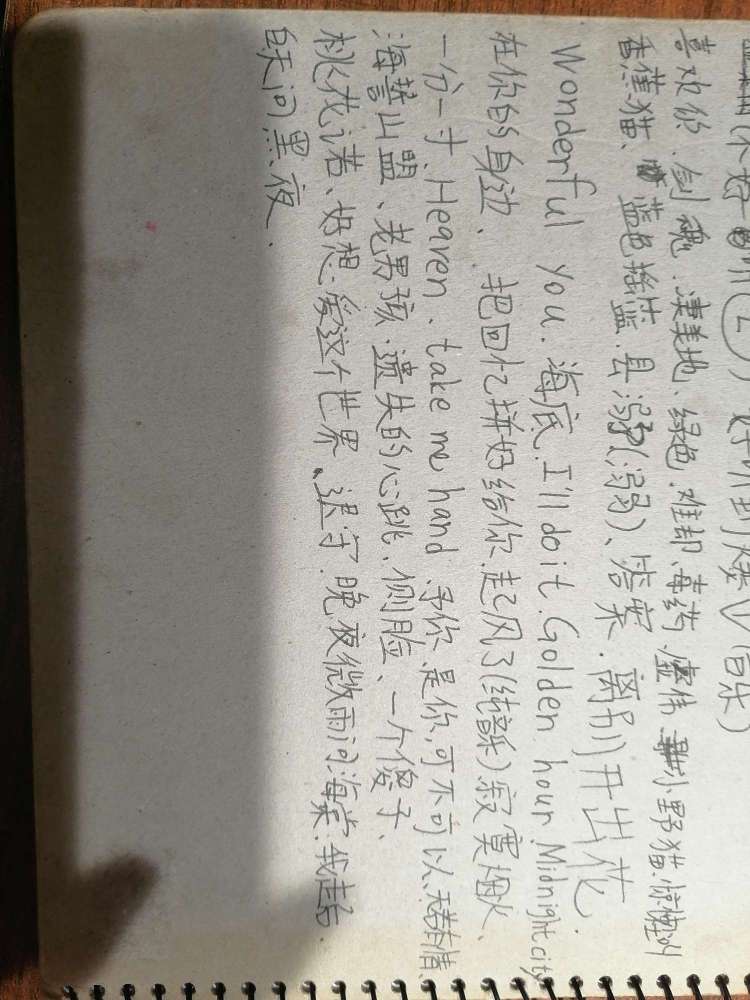 不好听
好听到爆 (音乐)
喜欢你、剑魂、凄美地、绿色、难却、毒药 虚伟 小野猫、惊悚
香蕉猫、蓝色 县溺(溺)、答案、离别开出花.
Wonderful you. 海底. I'll do it. Golden hour Midnight city
在你的身边、把回忆拼好给你、起风了(纯音乐) 寂寞烟火、
一分一寸、Heaven、take me hand. 予你、是你、可不可以、无情
海誓山盟、老男孩、遗失的心跳、侧脸、一个傻子、
桃花诺、好想爱这个世界、退守. 晚夜微雨问海棠、我走后.
白天问黑夜.